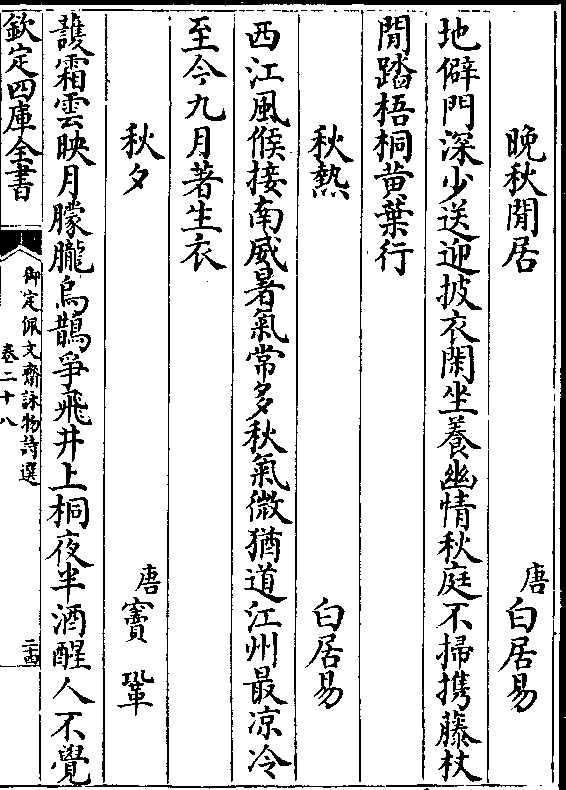 晚秋閒居　唐白居易
地僻門深少送迎披衣閑坐養幽情秋庭不掃攜藤杖
閒踏梧桐黃葉行
秋熱　白居易
西江風候接南威暑氣常多秋氣微猶道江州最凉冷
至今九月著生衣
秋夕　唐竇鞏
護霜雲映月朦朧烏鵲爭飛井上桐夜半酒醒人不覺
欽定四庫全書
御定佩文齋詠物詩選
卷二十八
二十四